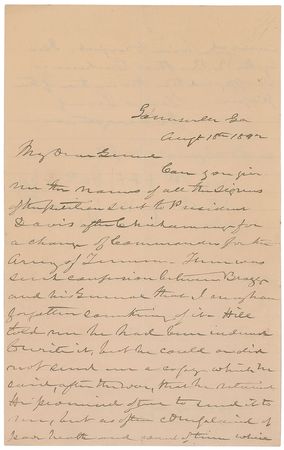 Gainesville Ga
Augt 18th 1892
My Dear General
Can you give
me the names of all the signers
of the petition sent to President
Davis after Chickamauga for
a change of Commanders for the
Army of Tennessee. There was
such confusion between Bragg
and his General that I may have
forgotten something of it. Hill
told me he had been induced
to write it, but he could or did
not send me a copy which he
said, after the war, that he retained
He promised often to send it to
me, but as often complained of
poor health and